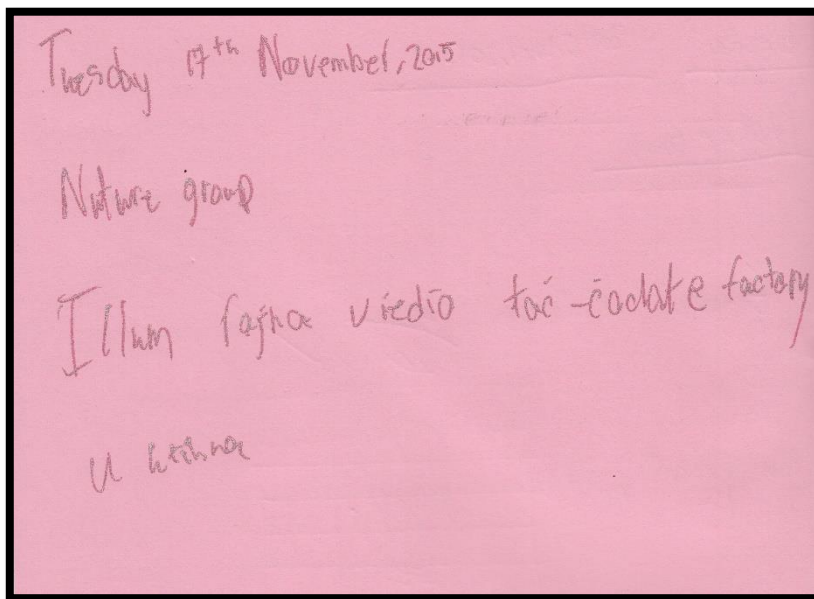 Tuesday 17th November, 2015
Nuture group
Illum rajna viedio tać-ćoclate factory
U ktibna